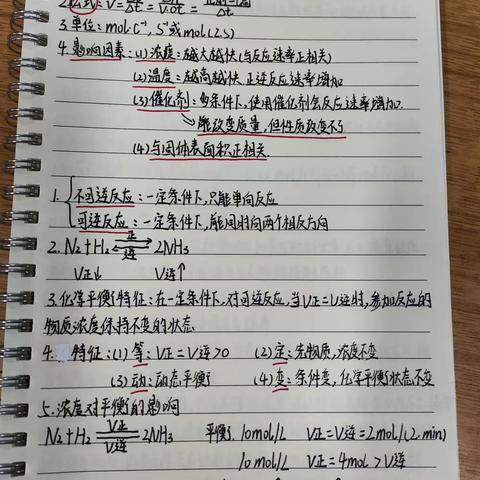 2.公式:V=
3.单位:mol·C⁻¹,S⁻¹或mol(L·S)
4.影响因素:(1)浓度:越大越快(与反应速率正相关)
(2)温度:越高越快,正逆反应速率增加
(3)催化剂:条件下,使用催化剂会反应速率增加.
能改变质量,但性质改变不了
(4)与固体表面积正相关.
1.{不可逆反应:一定条件下,只能单向反应
可逆反应:一定条件下,能同时向两个相反方向
2.N₂+H₂ ⇌ 2NH₃
正
逆
V正↓ V逆↑
3.化学平衡特征:在一定条件下,对可逆反应,当V正=V逆时,参加反应的
物质浓度保持不变的状态.
4.特征:(1)等:V正=V逆>0 (2)定:先物质,浓度不变
(3)动:动态平衡 (4)变:条件变,化学平衡状态不变
5.浓度对平衡的影响
N₂+H₂ ⇌ 2NH₃ 平衡1.10mol/L V正=V逆=2mol/(2·min)
V正
V逆
10mol/L V正=4mol>V逆